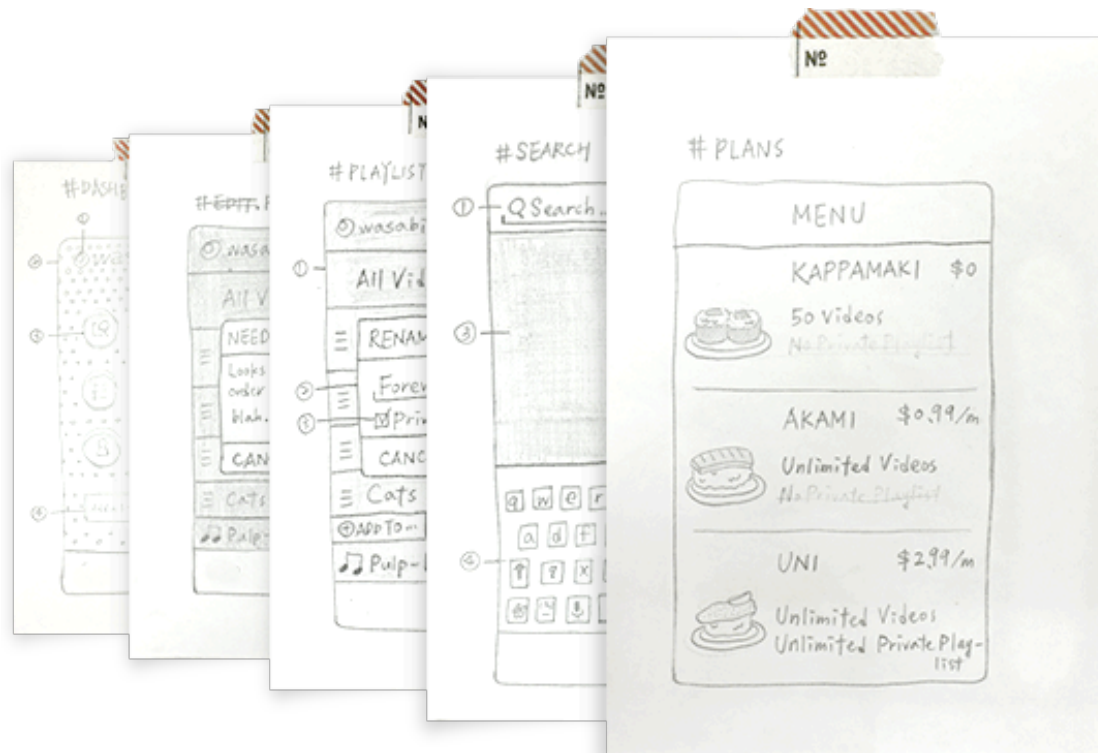 #DASHB
#EDIT.
wasa
All V
NEED
Looks
order
blah.
CAN
Cats
Pulp-
#PLAYLIST
① wasabi
All Vid
RENAM
② Forev
③ Priv
CANC
Cats
ADD TO…
Pulp-
Nº
#SEARCH
① Search..
③
q w e r
a d f
④ ? x
Nº
#PLANS
MENU
KAPPAMAKI $0
50 Videos
No Private Playlist
AKAMI $0.99/m
Unlimited Videos
No Private Playlist
UNI $2.99/m
Unlimited Videos
Unlimited Private Play-
list